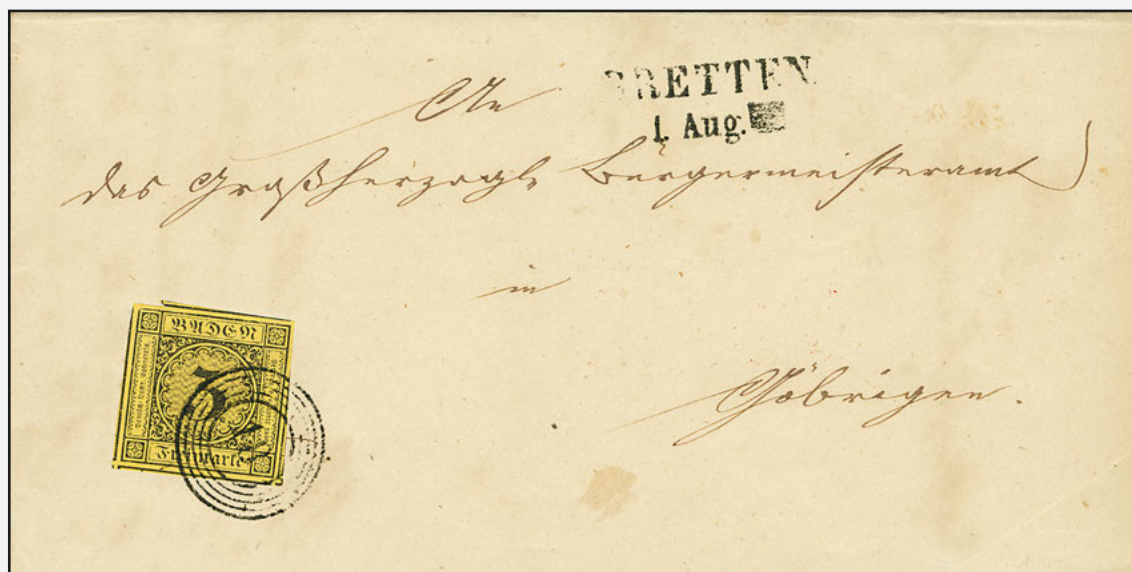 BRETTEN
1. Aug.
An
das Großherzogl. Bürgermeisteramt
in
Göbrigen.
BADEN
3
Freimarke